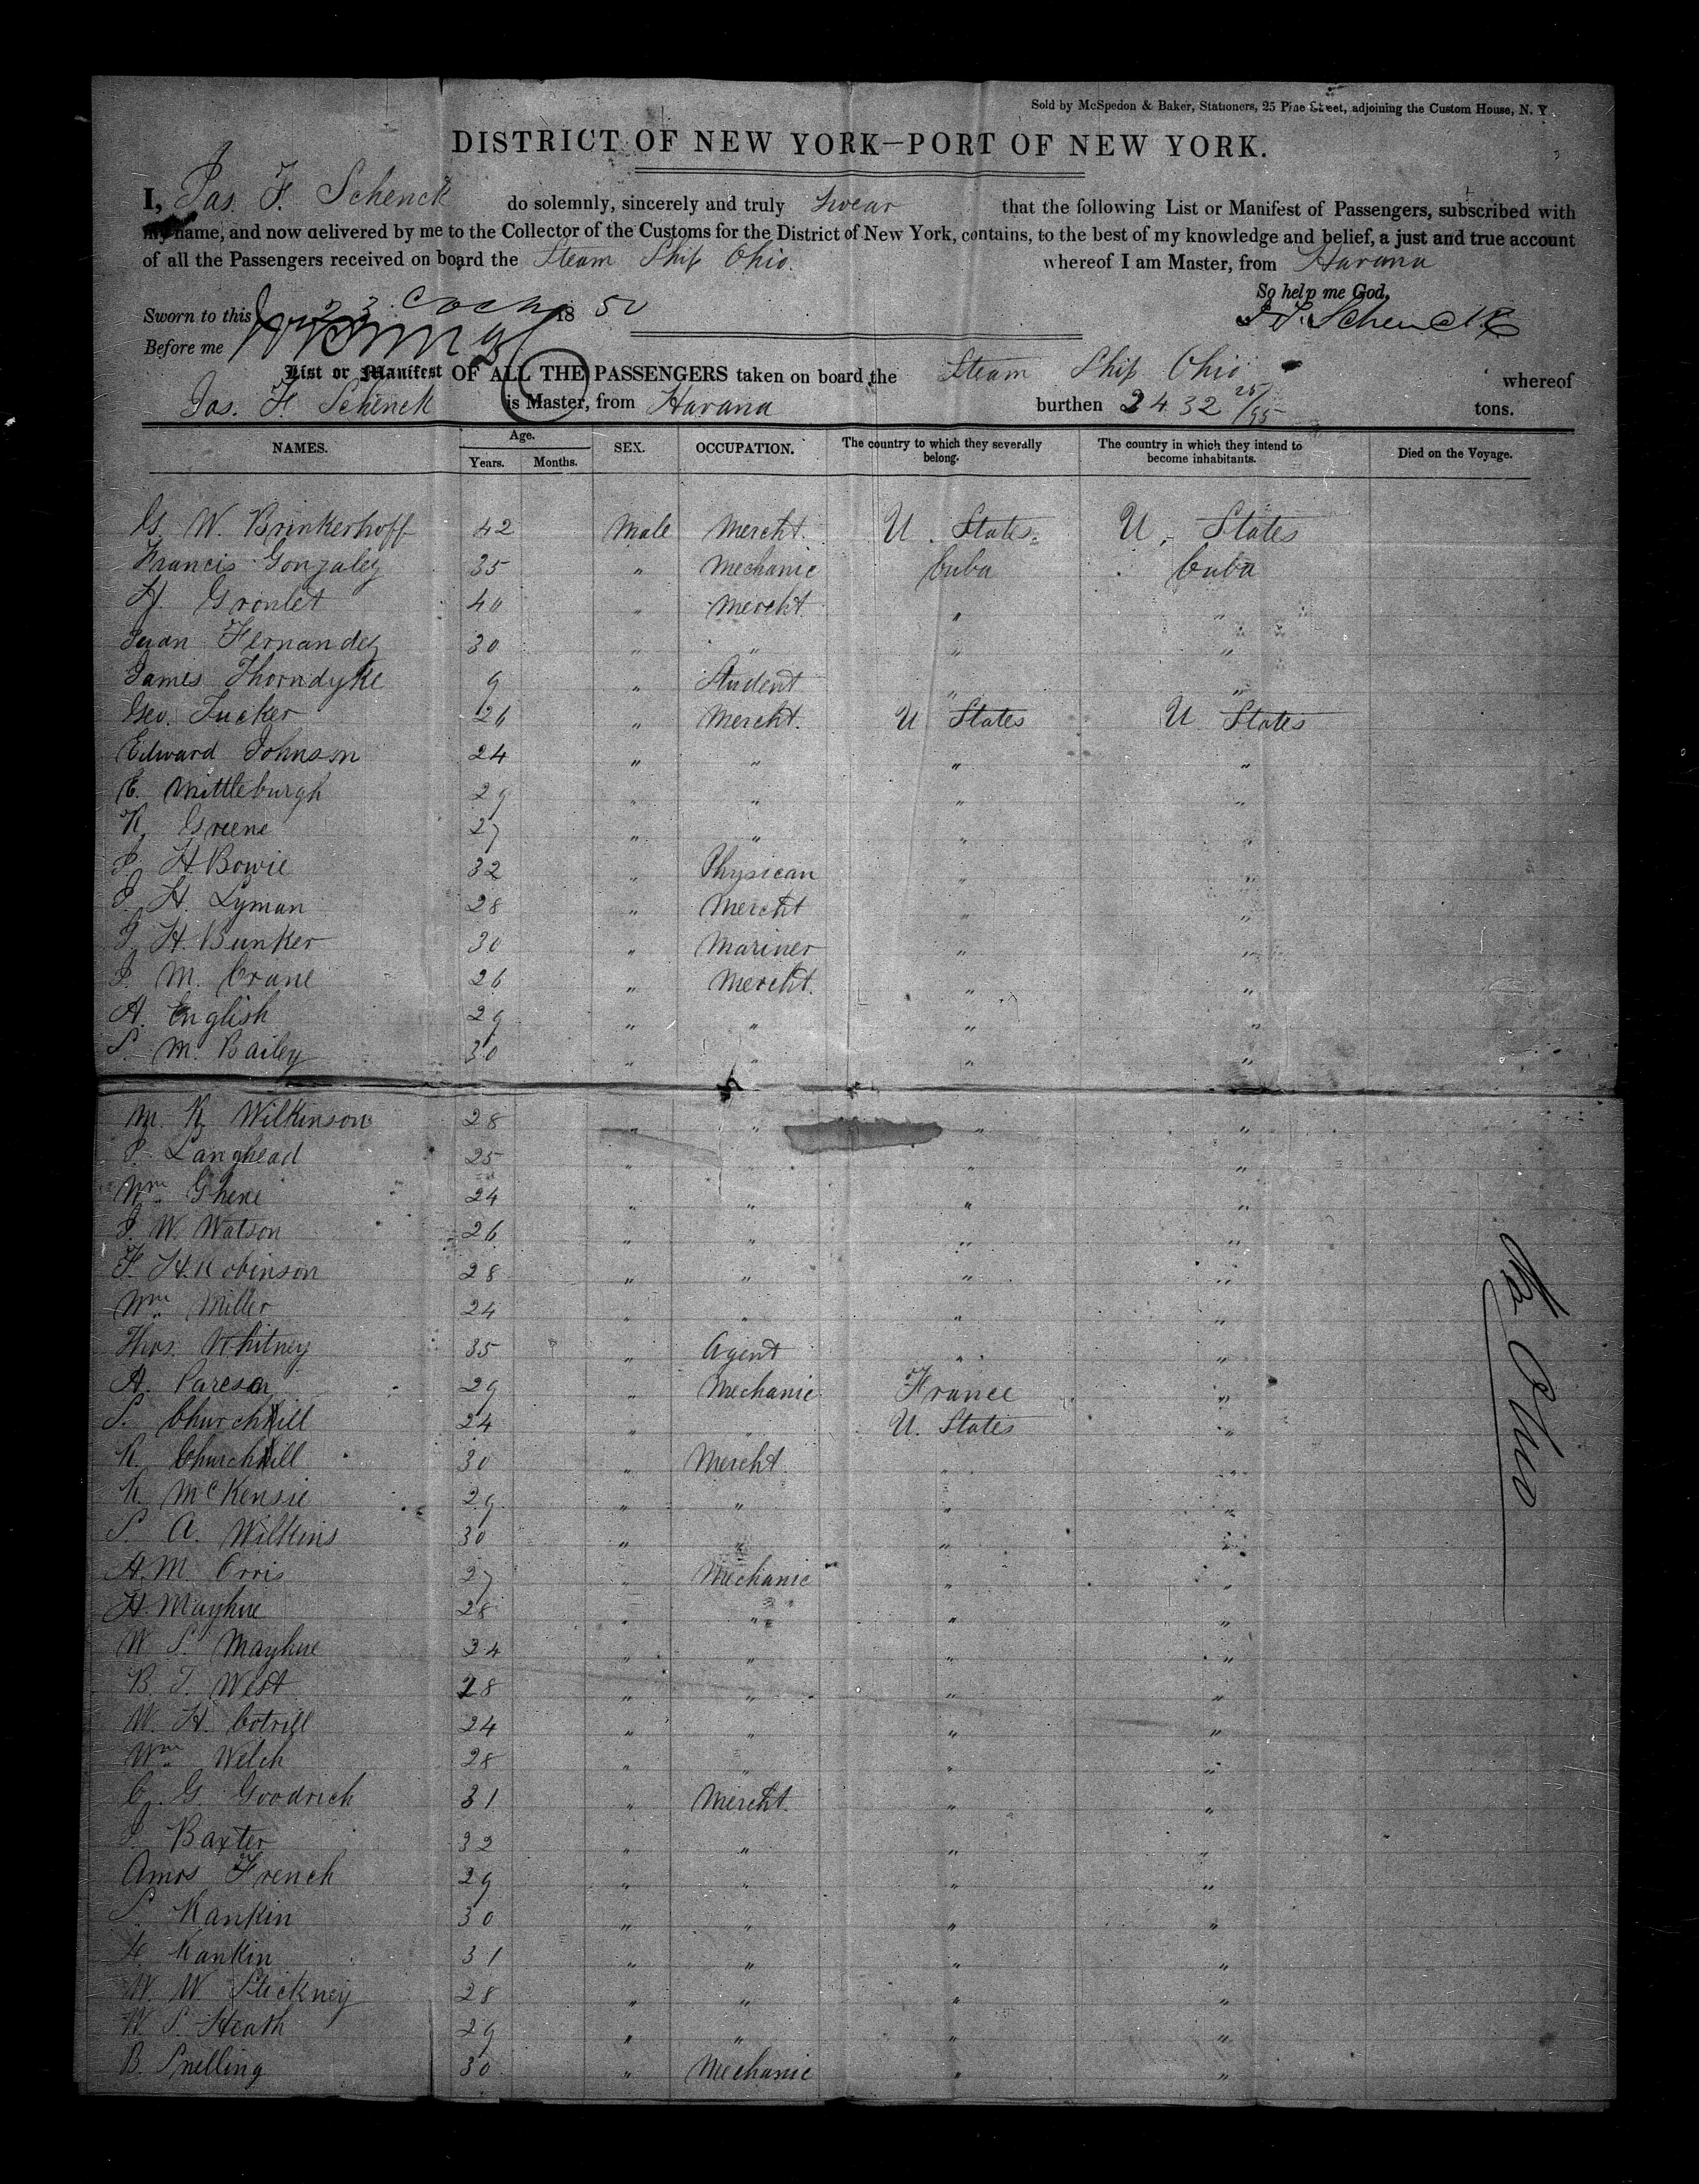 Sold by McSpedon & Baker, Stationers, 25 Pine Street, adjoining the Custom House, N. Y.
DISTRICT OF NEW YORK—PORT OF NEW YORK.
I, Jas. F. Schenck do solemnly, sincerely and truly Swear that the following List or Manifest of Passengers, subscribed with
my name, and now delivered by me to the Collector of the Customs for the District of New York, contains, to the best of my knowledge and belief, a just and true account
of all the Passengers received on board the Steam Ship Ohio. whereof I am Master, from Havana
So help me God,
Sworn to this 23 1850 J F Schenck
Before me
List or Manifest OF ALL THE PASSENGERS taken on board the Steam Ship Ohio whereof
Jas. F. Schenck is Master, from Havana burthen 2432 25/95 tons.
NAMES. Age. Years. Months. SEX. OCCUPATION. The country to which they severally belong. The country in which they intend to become inhabitants. Died on the Voyage.
G. W. Brinkerhoff 42 Male Mercht. U. States. U. States
Francis Gonzalez 35 " Mechanic Cuba Cuba
H. Gronlet 40 " Mercht. " "
Juan Fernandez 30 " " " "
James Thorndyke 9 " Student " "
Geo. Tucker 26 " Mercht. U States U States
Edward Johnson 24 " " " "
E. Mittleburgh 29 " " " "
R. Greene 27 " " " "
J. H. Bowie 32 " Physican " "
J. H. Lyman 28 " Mercht " "
J. H. Bunker 30 " Mariner " "
J. M. Crane 26 " Mercht. " "
A. English 29 " " " "
S. M. Bailey 30 " " " "
M. R. Wilkinson 28 " " " "
P. Langhead 25 " " " "
Wm. Ghene 24 " " " "
J. W. Watson 26 " " " "
F. H. Robinson 28 " " " "
Wm. Miller 24 " " "
Thos. Whitney 35 " Agent " "
A. 29 " Mechanic France "
S. Churchill 24 " " U. States "
R. Churchill 30 " Mercht " "
K. McKensie 29 " " " "
S. A. Wilkins 30 " " " "
A. M. Orris 27 " Mechanic " "
H. Mayhue 28 " " " "
W. S. Mayhue 24 " " " "
B. T. West 28 " " " "
W. H. Cotrill 24 " " " "
Wm. Welch 28 " " " "
C. G. Goodrich 31 " Mercht. " "
J. Baxter 32 " " " "
Amos French 29 " " " "
S. Rankin 30 " " " "
Rankin 31 " " " "
W. W. Stickney 28 " " " "
W. S. Heath 29 " " " "
B. Snelling 30 " Mechanic " "
Ohio